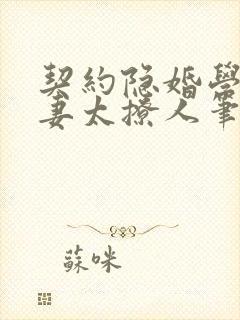 契約隐婚學
妻太撩人筆
蘇咪